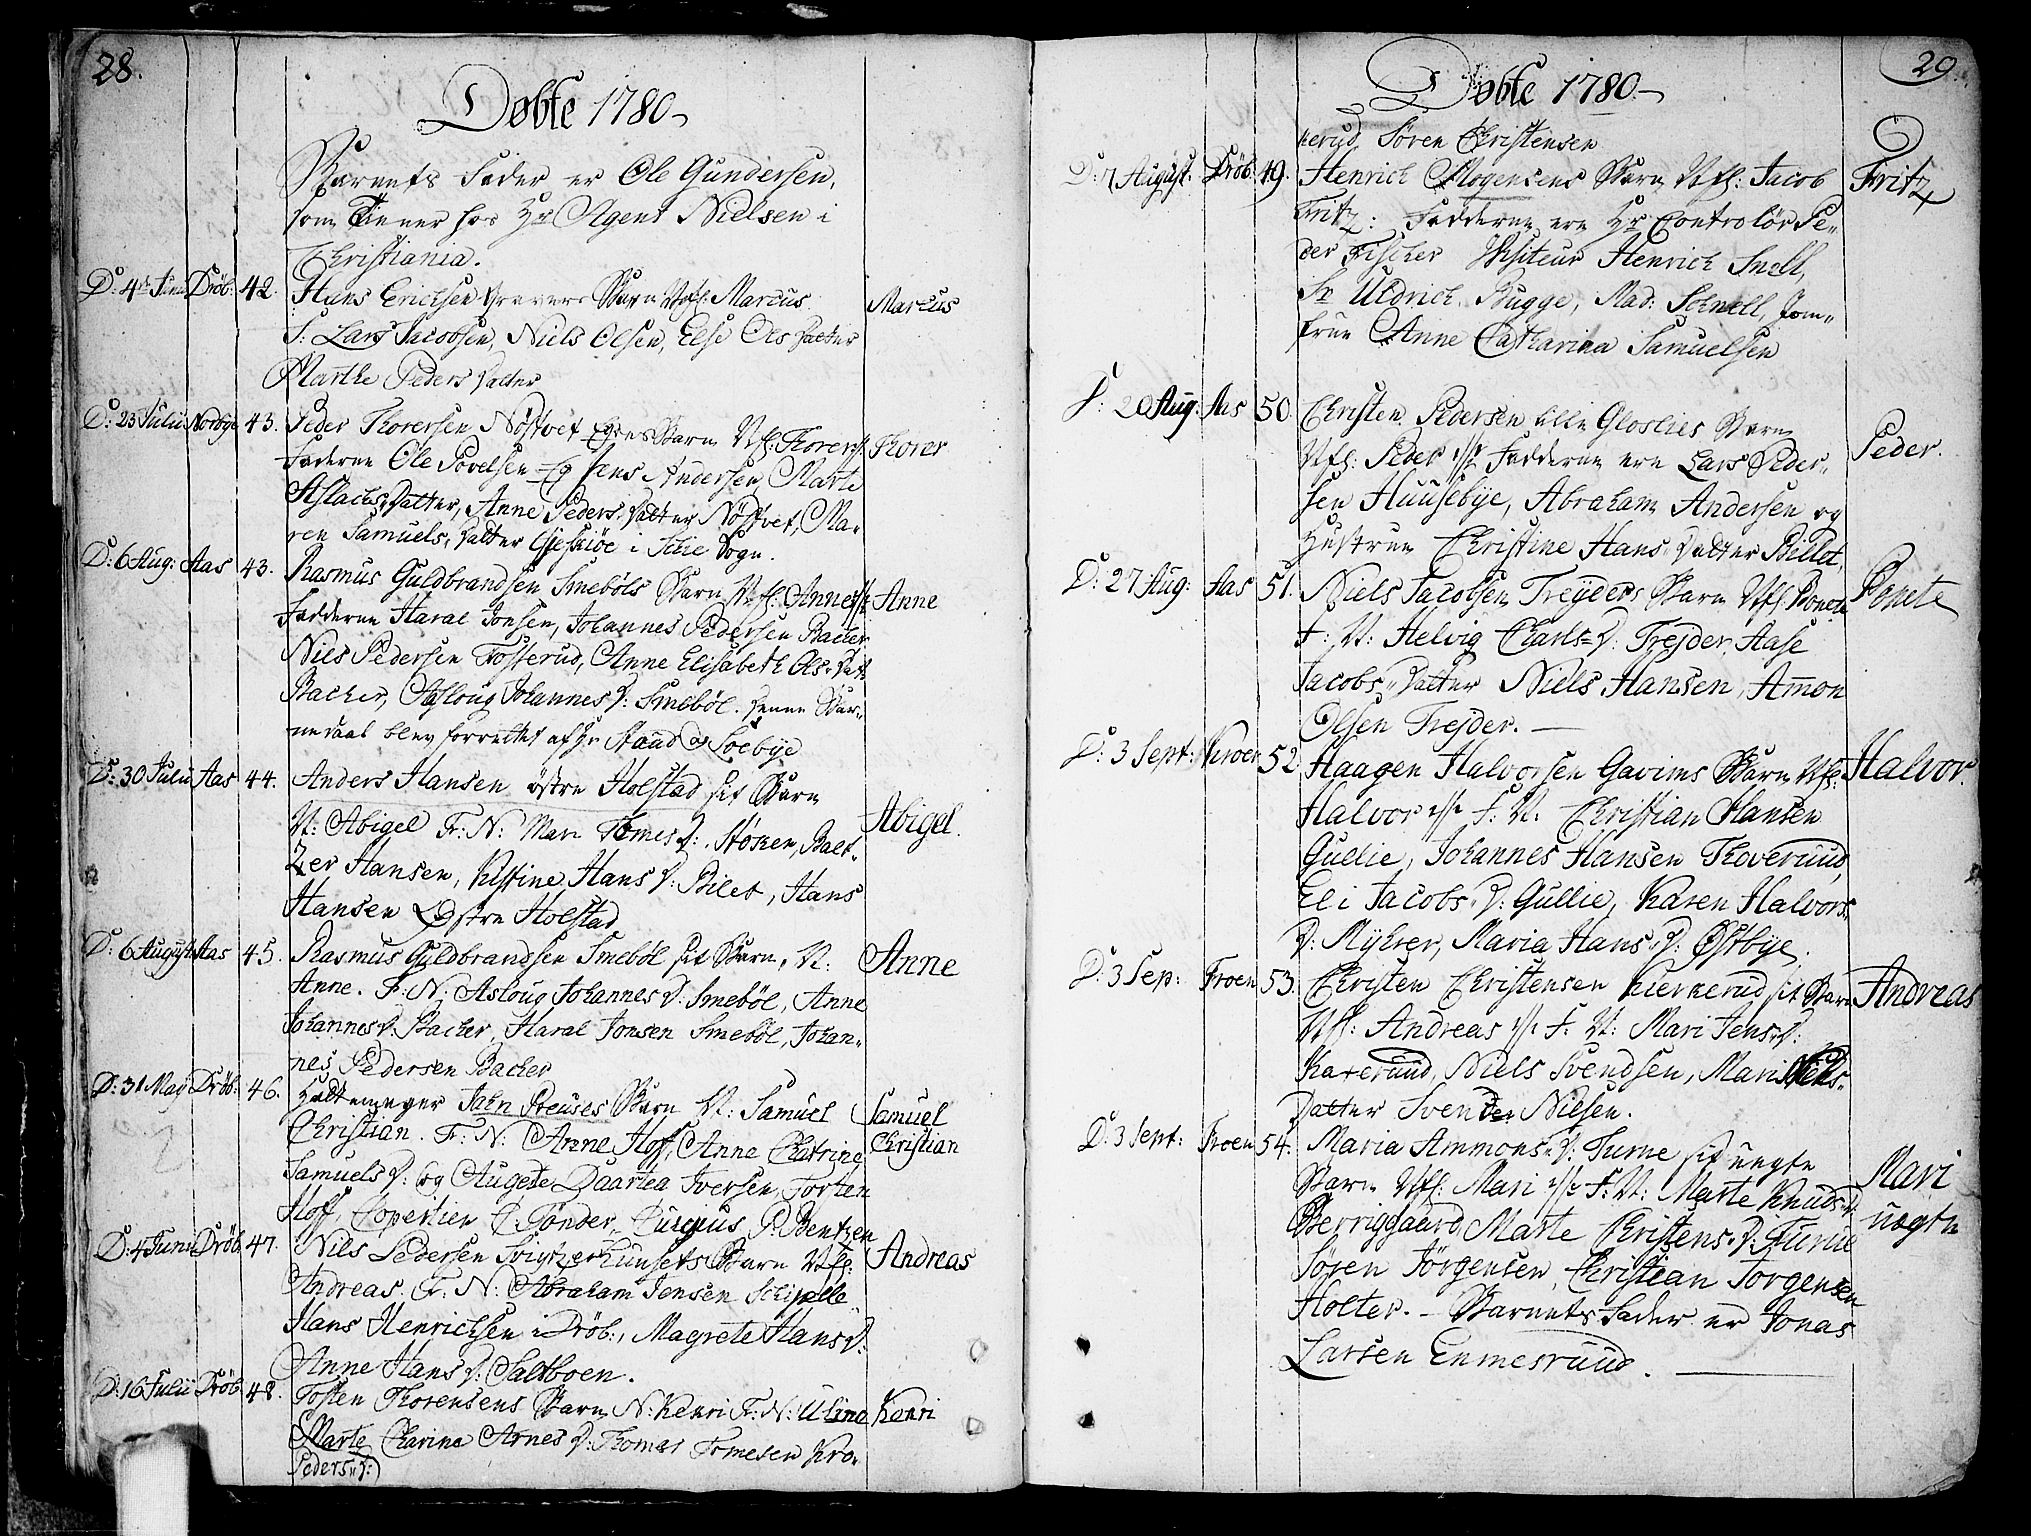 28.
Døbte 1780
Barnets Fader er Ole Gundersen,
som tiener hos Hr Agent Nielsen i
Christiania.
D: 4de Junii Dröb: 42. Hans Erichsen Barn Nfl: Marcus Marcus
F: Lars Jacobsen, Niels Olsen, Else Ols Datter
Marthe Peders Datter
D: 23 Julii Nordbye 43. Peder Thorersen Nøstvet Barn Nfl: Thorer Thorer
Fadderne Ole Povelsen og Jens Andersen, Marte
Aslachs Datter, Anne Peders Datter Nøstvet, Ma-
ren Samuels Datter i Schie Sogn.
D: 6 Aug: Aas 43. Rasmus Guldbrandsen Smeböls Barn Nfl: Anne Anne
Fadderne Haral Jonsen, Johannes Pedersen Bacher
Niels Pedersen Fosserud, Anne Elisabeth Ols Datt
Bacher, Asloug Johannes D: Smeböl. denne Bar-
nedaab blev forrettet af Hr Raud Loebye
D: 30 Julii Aas 44. Anders Hansen östre Holstad sit Barn
N: Abigel F: N: Mari Tomes D: Støken, Balt- Abigel.
zer Hansen, Kistine Hans D: Bilet, Hans
Hansen Østre Holstad
D: 6 August Aas 45. Rasmus Guldbrandsen Smeböl sit Barn, N: Anne
Anne. F: N: Asloug Johannes D: Smeböl, Anne
Johannes D: Bacher, Haral Jonsen Smeböl, Johan-
nes Pedersen Bacher
D: 31 May Dröb: 46. John Preuses Barn N: Samuel Samuel
Christian. F: N: Anne Hof, Anne Chatrine Christian
Samuels D: og Augete Daartea Iversen, Torsten
Hoff, C: Tønder, P: Bentzen
D: 4 Junii Dröb: 47. Nils Pedersen Barn Nfl: Andreas
Andreas. F: N: Abraham Jensen
Hans Henrichsen i Dröb:, Magrete Hans D:
Anne Hans D: Saltboen.
D: 16 Julii Dröb 48. Tosten Thorensens Barn N: Kenri F: N: Uline Kenri
Marte Charine Arnes D: Thomas Tomesen Kro-
Peders D:)
29.
Døbte 1780
kerud, Sören Christensen
D: 7 August. Dröb: 49. Henrich Mogensens Barn Nfl: Jacob Fritz
Fritz: Fadderne ere Hr Controlör Pe-
der Fischer Visiteur Henrich Snell,
Sr Uldrich Bugge, Mad: Schnell, Jom-
frue Anne Catharina Samuelsen
D: 20 Aug: Aas 50. Christen Pedersen lille Gloslies Barn
Nfl: Peder Fadderne ere Lars Peder- Peder.
sen Huusebye, Abraham Andersen og
Hustrue Christine Hans Datter Billet,
D: 27 Aug: Aas 51. Niels Jacobsen Treyders Barn Nfl: Bonete Bonete
F: N: Helvig Charls D: Trejder, Aase
Jacobs Datter Niels Hansen, Amon
Olsen Trejder.
D: 3 Sept: Kroer 52. Haagen Halvorsen Gavims Barn Nfl: Halvor.
Halvor F: N: Christian Hansen
Gullie, Johannes Hansen Thoveruud,
Eli Jacobs D: Gullie, Karen Halvors
D: Myhrer, Maria Hans D: Østbye.
D: 3 Sep: Froen 53. Christen Christensen Kierkerud sit Barn Andreas
Nfl: Andreas F: N: Mari Jens D:
Kateruud, Niels Svendsen, Mari Niels
Datter Svend Nilsen.
D: 3 Sept: Froen 54. Maria Ammons D: Furue sit uægte
Barn Nfl: Mari F: N: Marte Knuds D: Mari
Berriggaard, Marte Christens D: Furue uægte
Søren Jörgensen, Christian Jorgensen
Holter. — Barnets Fader er Jonas
Larsen Enmesruud.